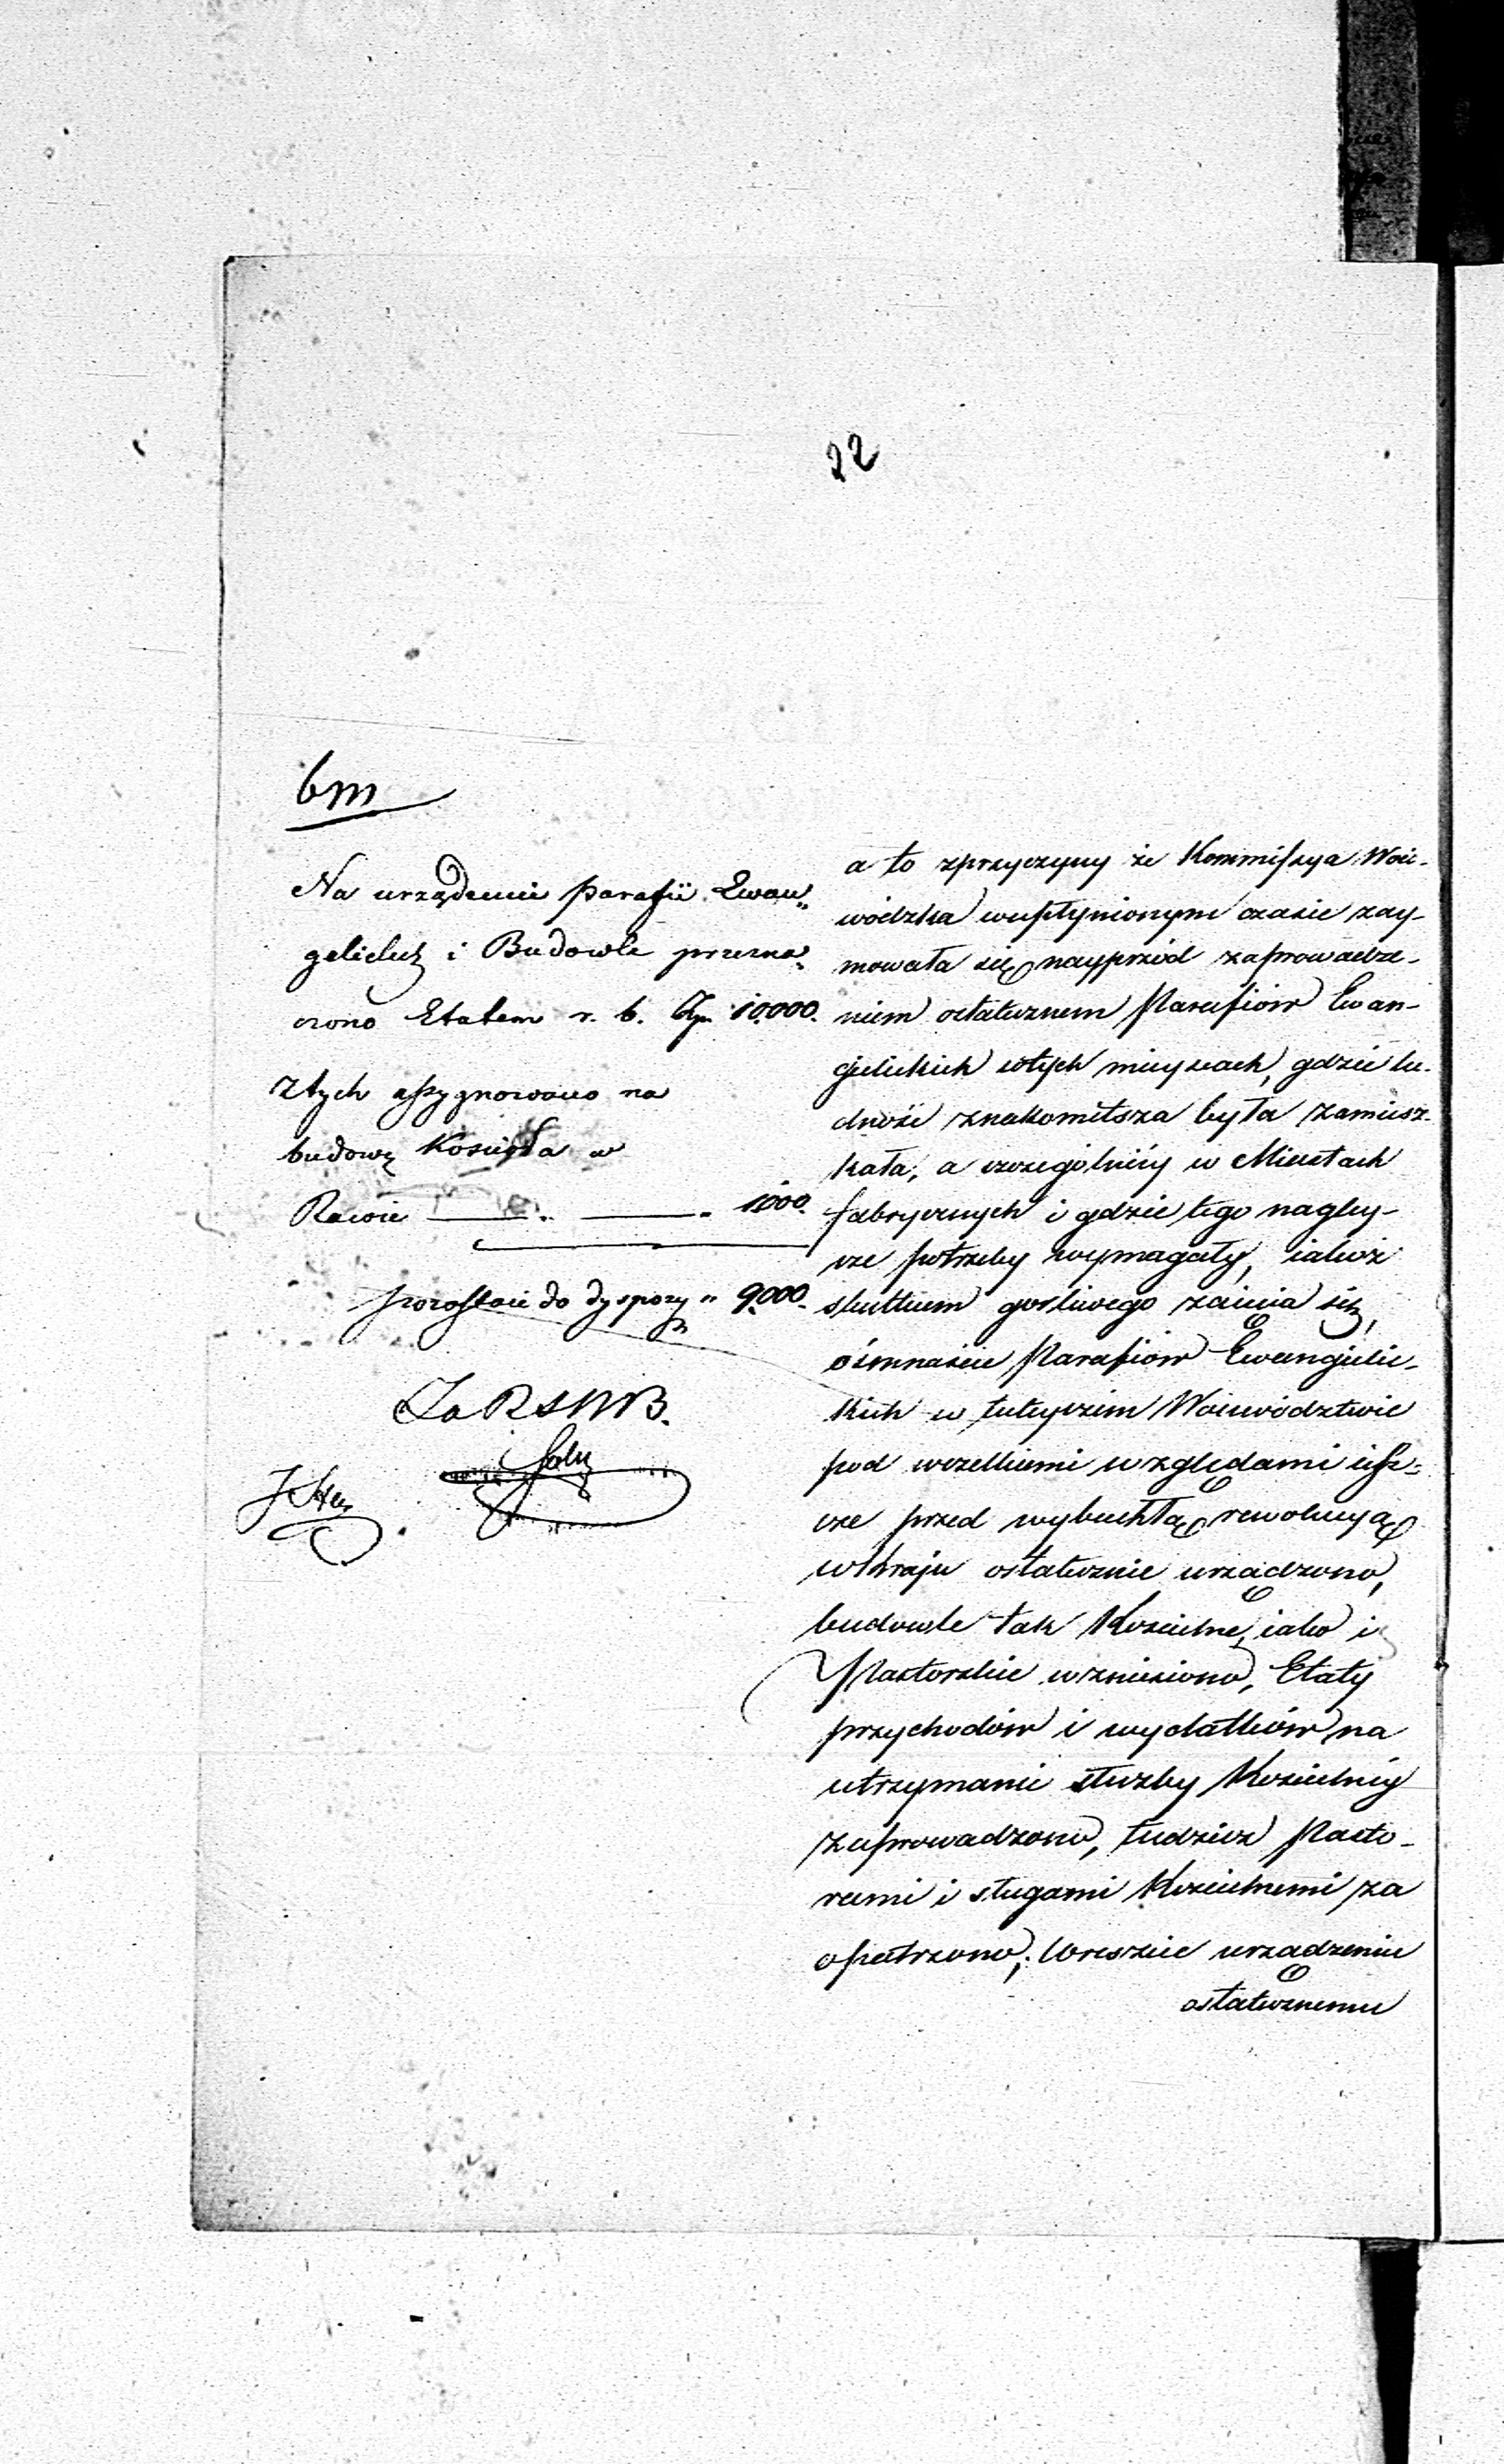 22
bm
Na urządzenie parafii Ewan„
gelickiey i Budowle przezna„
czono Etatem r. b. Złp. 10.000.
Z tych assygnowano na
budowę Kościoła w
Rawie — „ — „ 1000.
pozostaie do dyspozy „ 9000.
Za RSWB.
a to zprzyczyny że Kommissya Woie-
wódzka wupłynionym czasie zay-
mowała się nayprzód zaprowadze-
niem ostatecznem Parafiów Ewan-
gielickich wtych mieyscach, gdzie lu-
dność znakomitsza była zamiesz-
kała, a szczególniéy w Miastach
fabrycznych i gdzie tego nagléy-
sze potrzeby wymagały, iakoż
skutkiem gorliwego zaięcia się,
ośmnaście Parafiów Ewangielic-
kich w tuteyszém Woiewództwie
pod wszelkiemi względami iesz-
cze przed wybuchłą rewolucyą
wkraju ostatecznie urządzono,
budowle tak Kościelne, iako i
Pastorskie wzniesiono, Etaty
przychodów i wydatków na
utrzymanie służby Kościelnéy
zaprowadzono, tudzież Pasto-
rami i sługami Kościelnemi za
opatrzono; Wreszcie urządzeniu
ostatecznemu